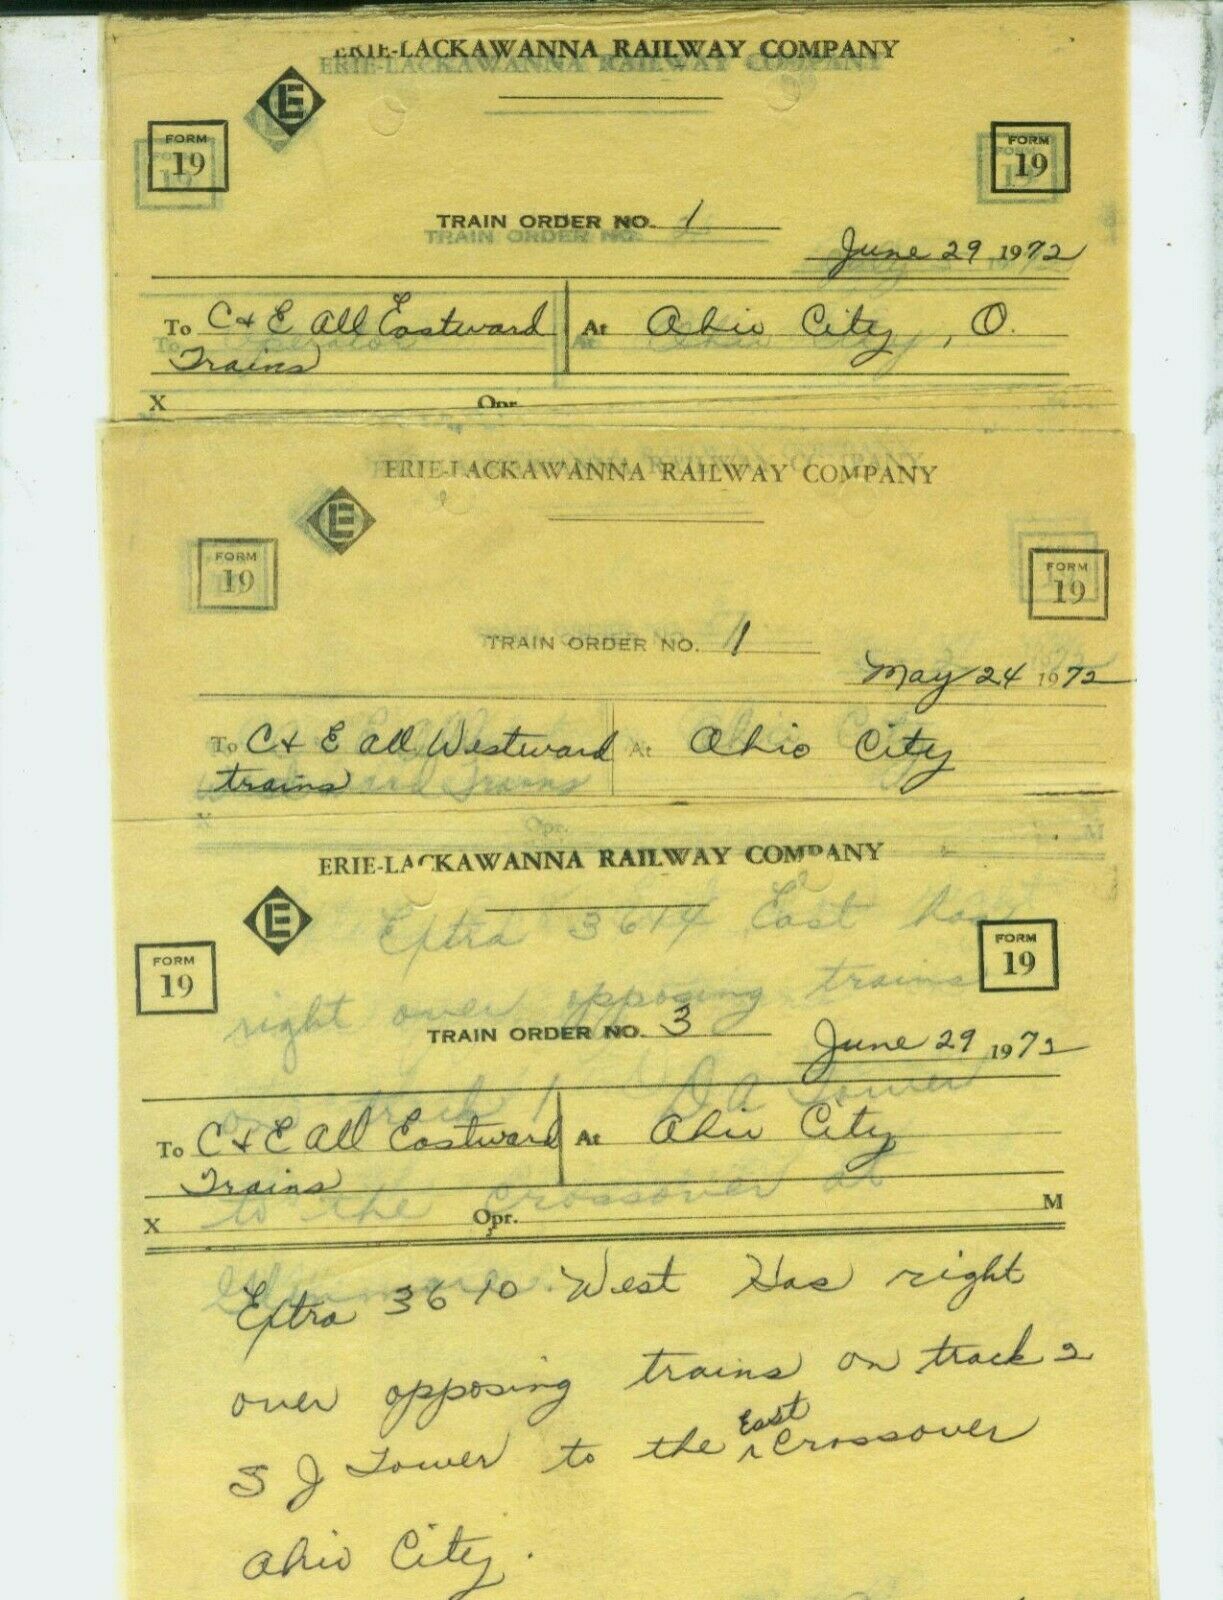 ERIE-LACKAWANNA RAILWAY COMPANY
E
FORM 19
FORM 19
TRAIN ORDER NO. 1
June 29 1972
To C & E All Eastward Trains
At Ohio City, O.
X Opr.
ERIE-LACKAWANNA RAILWAY COMPANY
E
FORM 19
FORM 19
TRAIN ORDER NO. 1
May 24 1972
To C & E All Westward trains
At Ohio City
X Opr. M
ERIE-LACKAWANNA RAILWAY COMPANY
E
FORM 19
FORM 19
TRAIN ORDER NO. 3
June 29 1972
To C & E All Eastward Trains
At Ohio City
X Opr. M
Extra 3610 West Has right
over opposing trains on track 2
S J Tower to the East Crossover
Ohio City.
Extra 3614 East has
right over opposing trains
on track 1 D A Tower
to the crossover at